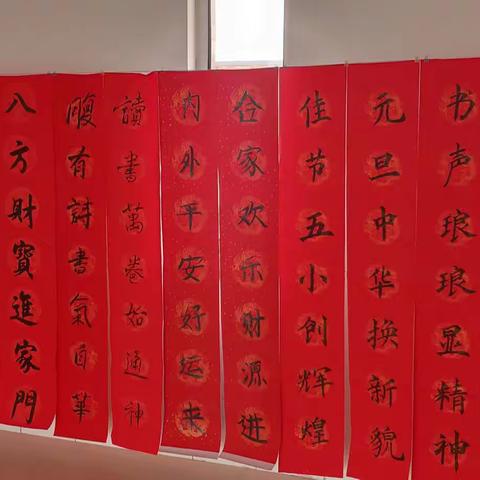 书声琅琅显精神
元旦中华换新貌
佳节五小创辉煌
合家欢乐财源进
内外平安好运来
讀書萬卷始通神
腹有詩書氣自華
八方財寶進家門